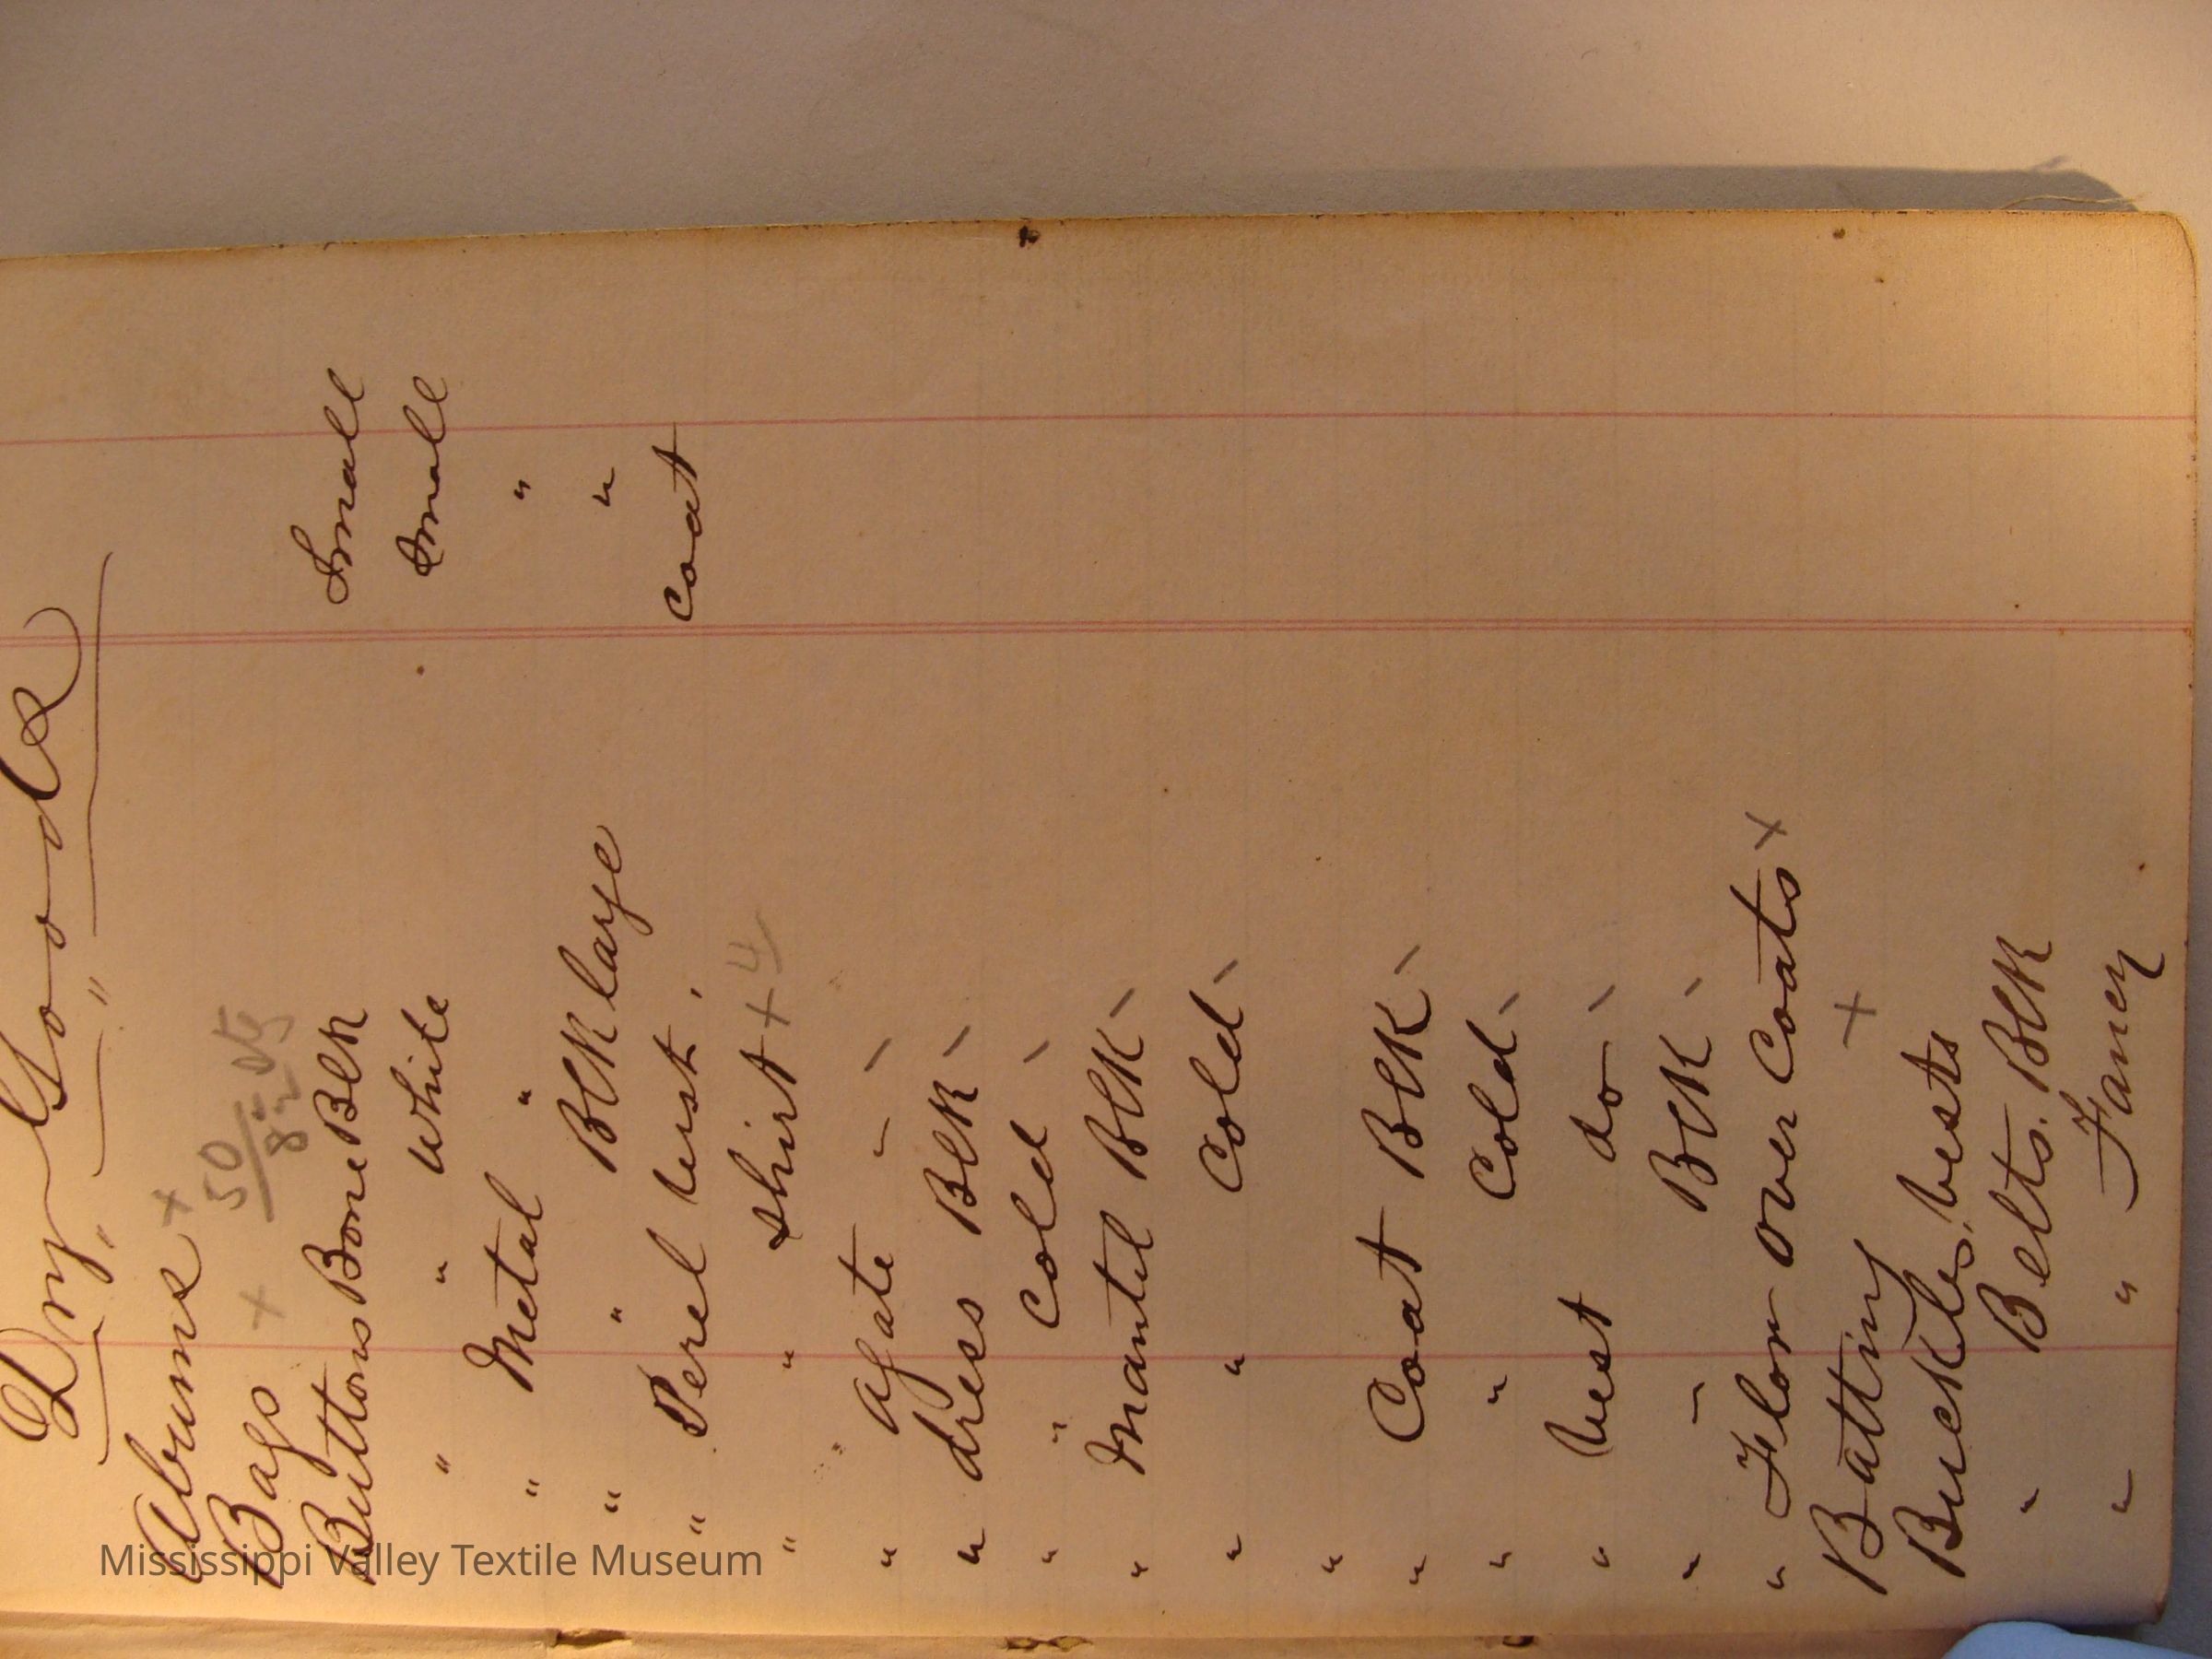 Dry Goods
Albums x
Bags x 50/
Buttons Bone Blk Small
" " White Small
" Metal " "
" " Blk large "
" Perel vest. Coat
" " Shirt + 4/
" " Agate – –
" dress Blk –
" " Cold –
" Mantel Blk –
" " Cold –
"
" Coat Blk –
" " Cold –
" Vest do –
" – Blk –
" Flor over Coats x
Batting x
Buckles, vests
" Belts. Blk
" " Fancy
Mississippi Valley Textile Museum